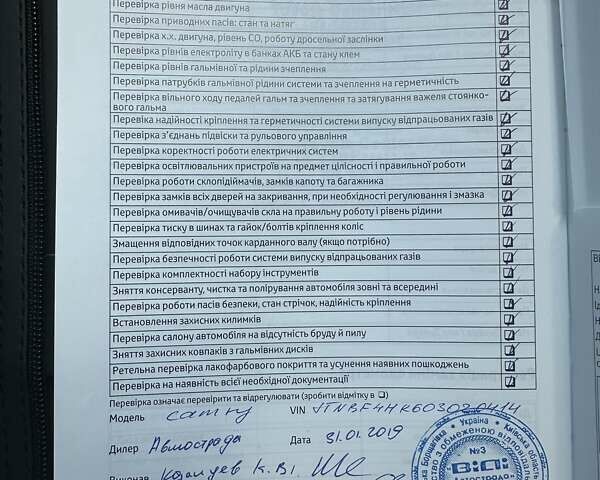 Перевірка рівня масла двигуна
Перевірка приводних пасів: стан та натяг
Перевірка х.х. двигуна, рівень СО, роботу дросельної заслінки
Перевірка рівнів електроліту в банках АКБ та стану клем
Перевірка рівнів гальмівної та рідини зчеплення
Перевірка патрубків гальмівної рідини системи та зчеплення на герметичність
Перевірка вільного ходу педалей гальм та зчеплення та затягування важеля стоянко-
вого гальма
Перевіка надійності кріплення та герметичності системи випуску відпрацьованих газів
Перевірка з'єднань підвіски та рульового управління
Перевірка коректності роботи електричних систем
Перевірка освітлювальних пристроїв на предмет цілісності і правильної роботи
Перевірка роботи склопідіймачів, замків капоту та багажника
Перевірка замків всіх дверей на закривання, при необхідності регулювання і змазка
Перевірка омивачів/очищувачів скла на правильну роботу і рівень рідини
Перевірка тиску в шинах та гайок/болтів кріплення коліс
Змащення відповідних точок карданного валу (якщо потрібно)
Перевірка безпечності роботи системи випуску відпрацьованих газів
Перевірка комплектності набору інструментів
Зняття консерванту, чистка та полірування автомобіля зовні та всередині
Перевірка роботи пасів безпеки, стан стрічок, надійність кріплення
Встановлення захисних килимків
Перевірка салону автомобіля на відсутність бруду й пилу
Зняття захисних ковпаків з гальмівних дисків
Ретельна перевірка лакофарбового покриття та усунення наявних пошкоджень
Перевірка на наявність всієї необхідної документації
Перевірка означає перевірити та відрегулювати (зробити відмітку в ❑)
Модель camry VIN JTNBF4HK603020414
Дилер Автострада Дата 31.01.2019
Виконав К.В.
Україна
Київська
№3
ВіДі
Автострада